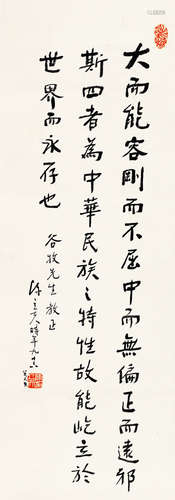 大而能容剛而不屈中而無偏正而遠邪
斯四者為中華民族之特性故能屹立於
世界而永存也
谷牧先生教正
陳立夫時年九十